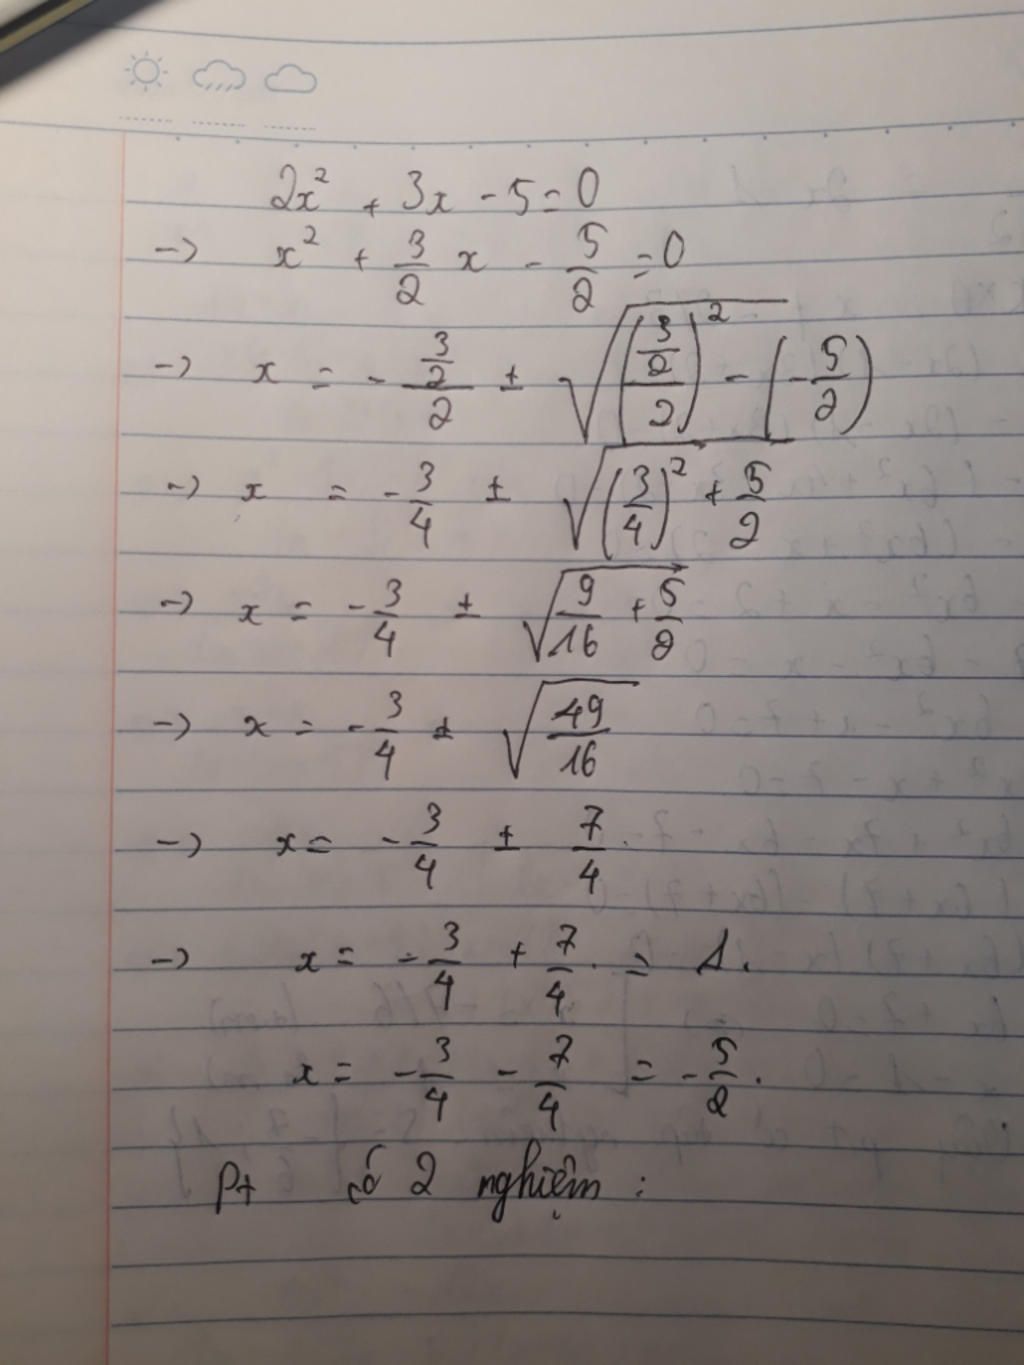 2x² + 3x - 5 = 0
-> x² + 3/2 x - 5/2 = 0
-> x = - (3/2)/2 ± √(((3/2)/2)² - (-5/2))
-> x = - 3/4 ± √((3/4)² + 5/2)
-> x = - 3/4 ± √(9/16 + 5/2)
-> x = - 3/4 ± √(49/16)
-> x = - 3/4 ± 7/4.
-> x = - 3/4 + 7/4. = 1.
x = - 3/4 - 7/4 = - 5/2.
Pt có 2 nghiệm :